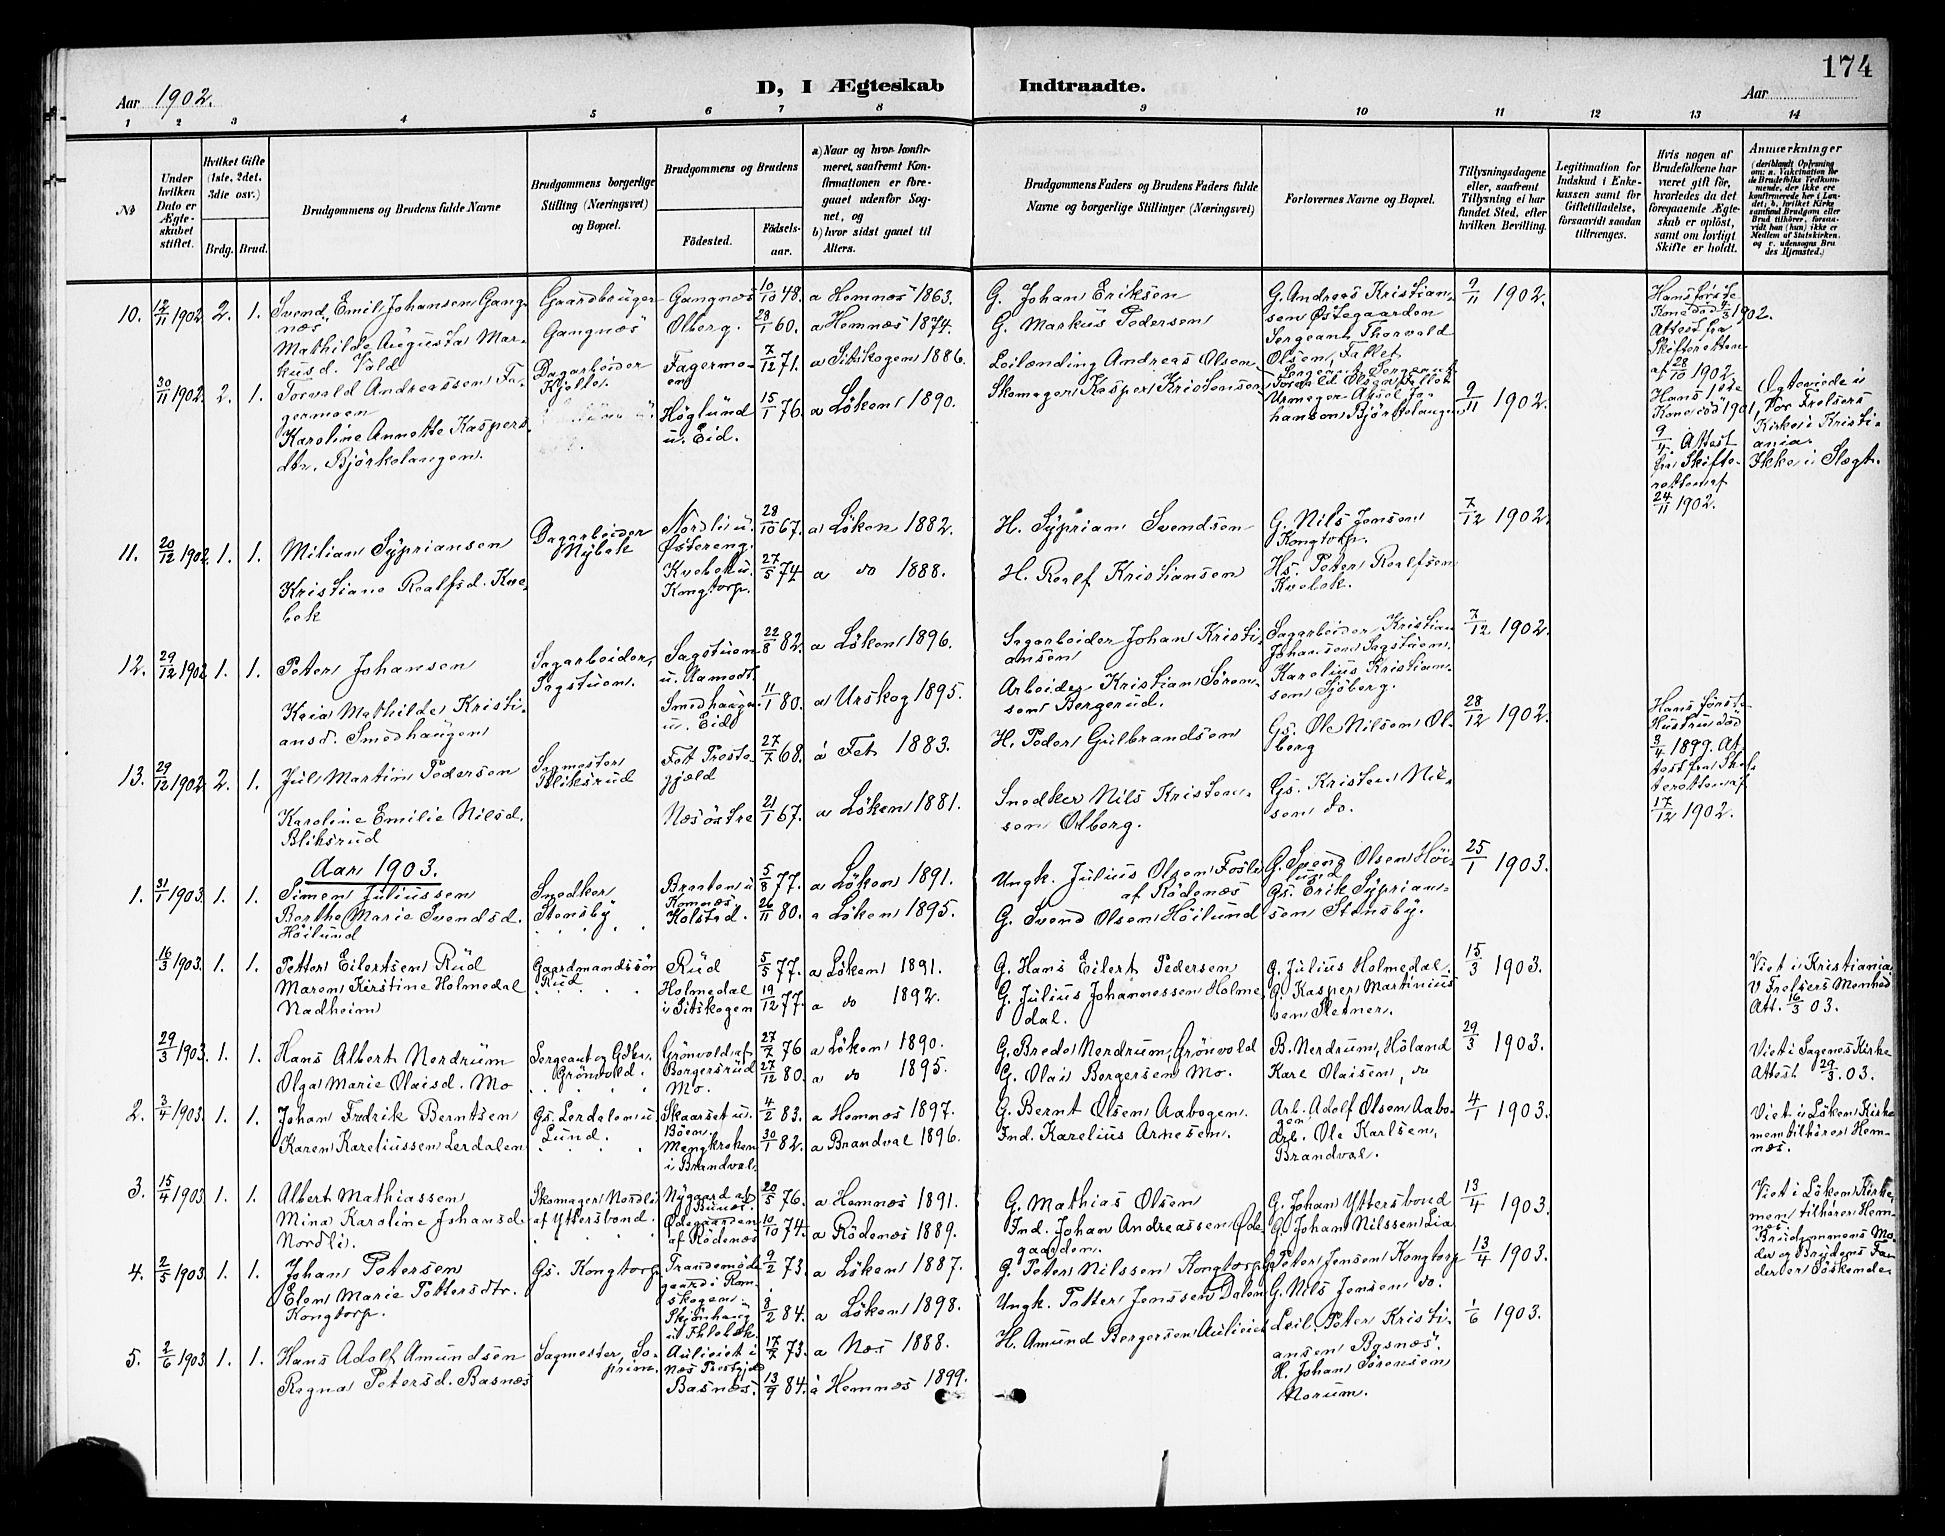 174
Aar 1902.
D, I Ægteskab Indtraadte.
Aar
1 2 3 4 5 6 7 8 9 10 11 12 13 14
№
Under hvilken Dato er Ægteskabet stiftet.
Hvilket Gifte (1ste, 2det, 3die osv.)
Brdg. Brud.
Brudgommens og Brudens fulde Navne
Brudgommens borgerlige Stilling (Næringsvei) og Bopæl.
Brudgommens og Brudens
Fødested.
Fødselsaar.
a) Naar og hvor konfirmeret, saafremt Konfirmationen er foregaaet udenfor Sognet, og
b) hvor sidst gaaet til Alters.
Brudgommens Faders og Brudens Faders fulde Navne og borgerlige Stillinger (Næringsvei)
Forlovernes Navne og Bopæl.
Tillysningsdagene eller, saafremt Tillysning ei har fundet Sted, efter hvilken Bevilling.
Legitimation for Indskud i Enkekassen samt for Giftetilladelse, forsaavidt saadan tiltrænges.
Hvis nogen af Brudefolkene har været gift før, hvorledes da det foregaaende Ægteskab er opløst, samt om lovligt Skifte er holdt.
Anmærkninger
(deriblandt Oplysning om: a. Vakcination for de Brudefolks Vedkommende, der ikke ere konfirmerede her i Landet; b. hvilket Kirkesamfund Brudgom eller Brud tilhører, forsaavidt han (hun) ikke er Medlem af Statskirken, og c. udensogns Brudes Hjemsted.)
10. 12/11 1902. 2. 1. Svend Emil Johansen Gangnæs Gaardbruger Gangnæs Gangnæs 10/10 48. a Hemnæs 1863. G. Johan Eriksen G. Andreas Kristiansen Østegaarden 9/11 1902. Hans første Kone død 4/3 1902. Attest fra Skifteretten af 28/10 1902.
Mathilde Augusta Markusd. Vald Olberg. 28/1 60. a Hemnæs 1874. G. Markus Pedersen Sergeant Thorvald Olsen, Fallet
30/11 1902. 2. 1. Torvald Andreassen Fagermoen Dagarbeider Kjelle. Fagermoen 7/12 71. a Sitskogen 1886. Leilænding Andreas Olsen Sergeant Torvald Olsen Fallet 9/11 1902. Hans 1ste Kone død 1901, 9/4. Attest fra Skifteretten af 24/11 1902. Ægteviede i Vor Frelsers Kirke i Kristiania. Ikke i Slægt.
Karoline Annette Kaspersdtr. Björkelangen. Höglund u. Eid. 15/1 76. a Løken 1890. Skomager Kasper Kristensen Urmager Aksel Johansen Björkelangen
11. 20/12 1902. 1. 1. Milian Sÿpriansen Dagarbeider Nÿbak Nordli u. Østereng. 28/10 67. a Løken 1882. H. Sÿprian Svendsen G. Nils Jensen Kongtorp. 7/12 1902.
Kristiane Roalfsd. Kvebek Kvebek u. Kongtorp. 27/5 74 a do 1888. H. Roalf Kristiansen Hs. Peter Roalfsen Kvebek.
12. 29/12 1902 1. 1. Peter Johansen Sagarbeider, Sagstuen. Sagstuen u. Aamodt. 22/8 82. a Løken 1896. Sagarbeider Johan Kristiansen Sagarbeider Kristian Johansen Sagstuen. 7/12 1902.
Kaia Mathilde Kristiansd. Smedhaugen Smedhaugen u. Eid 11/1 80. a Urskog 1895. Arbeider Kristian Sørensen Bergerud. Karelius Kristiansen Sjøberg.
13. 29/12 1902 2. 1. Jul Martin Pedersen Sagmester Bliksrud Fet Prestegjæld 27/7 68. a Fet 1883. H. Peder Gulbrandsen Gs. Ole Nilsen Olberg 28/12 1902. Hans første Hustru død 3/4 1899. Attest fra Skifteretten af 17/12 1902.
Karoline Emilie Nilsd. Bliksrud Næsöstre 21/1 67. a Løken 1881. Snedker Nils Kristensen Olberg. Gs. Kristen Nilsen do.
Aar 1903.
1. 31/1 1903. 1. 1. Simen Juliussen Snedker Stensbÿ Braaten u Komnæs 5/8 77. a Løken 1891. Ungk. Julius Olsen Fosli af Rödenæs G. Svend Olsen Höilund 25/1 1903.
Berthe Marie Svendsd. Höilund Kolstad. 26/11 80. a Løken 1895. G. Svend Olsen Höilund Gs. Erik Sÿpriansen Stensbÿ.
16/3 1903. 1. 1. Petter Eilertsen Rüd Gaardmandssön Rud Rüd 5/5 77. a Løken 1891. G. Hans Eilert Pedersen G. Julius Holmedal. 15/3 1903. Viet i Kristiania V Frelsers Menhed Att. 16/3 03.
Maren Kirstine Holmedal Nadheim Holmedal i Sitskogen 19/12 77. a do 1892. G. Julius Johannessen Holmedal. G. Kasper Martiniussen Stetner.
29/3 1903. 1. 1. Hans Albert Nerdrüm Sergeant og Gdbr. Grönvold. Grönvold af Borgersrud 27/7 76 a Løken 1890. G. Brede Nerdrum, Grönvold B. Nerdrum, Höland 29/3 1903. Viet i Sagenes Kirke Attest 29/3. 03.
Olga Marie Olaisd. Mo Mo. 27/12 80. a do 1895. G. Olai Borgersen Mo. Karl Olaisen, do
2. 3/4 1903. 1. 1. Johan Fredrik Berntsen Gs. Lerdalen u. Lund. Skaaret u. Böen. 4/2 83. a Hemnæs 1897. G. Bernt Olsen Aabogen. Arb. Adolf Olsen Aabogen 4/1 1903. Viet i Løken Kirke men tilhører Hemnæs.
Karen Kareliussen Lerdalen Mengkroken i Brandval. 30/1 82. a Brandval 1896. Ind. Karelius Arnesen. Arb. Ole Karlsen, Brandval.
3. 15/4 1903. 1. 1. Albert Mathiassen Skomager Nordli af Ÿttersbond. Nÿgaard af Bunæs. 20/5 76. a Hemnæs 1891. G. Mathias Olsen G. Johan Ÿttersbond 13/4 1903. Viet i Løken Kirke, men tilhører Hemnæs. Brudgommens Moder og Brudens Fader er Søskende
Mina Karoline Johansd. Nordli. Ødegaarden af Rödenæs 10/10 74. a Rödenæs 1889. Ind. Johan Andreassen Ødegaarden. G. Johan Nilssen Lia
4. 2/5 1903. 1. 1. Johan Petersen Gs. Kongtorp Trandemödegaard i Romskogen. 9/2 73. a Løken 1887. G. Peter Nilssen Kongtorp G. Peter Jensen Kongtorp 13/4 1903.
Elen Marie Pettersdtr. Kongtorp. Skjønhaug 8/2 84. a Løken 1898. Ungk. Petter Jenssen Dalen G. Nils Jensen do.
5. 2/6 1903 1. 1. Hans Adolf Amundsen Sagmester, Soprim. Aulieiet i Nes Prestgjd 17/7 73. a Nes 1888. H. Amund Bergersen Aulieiet Leil. Peter Kristiansen Basnæs. 1/6 1903.
Ragna Petersd. Basnæs Basnæs. 13/9 84. a Hemnæs 1899. H. Johan Sørensen Norum.